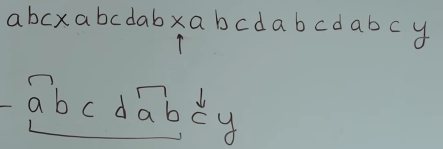 abcxabcdabxabcdabcdabcy
abcdabcy